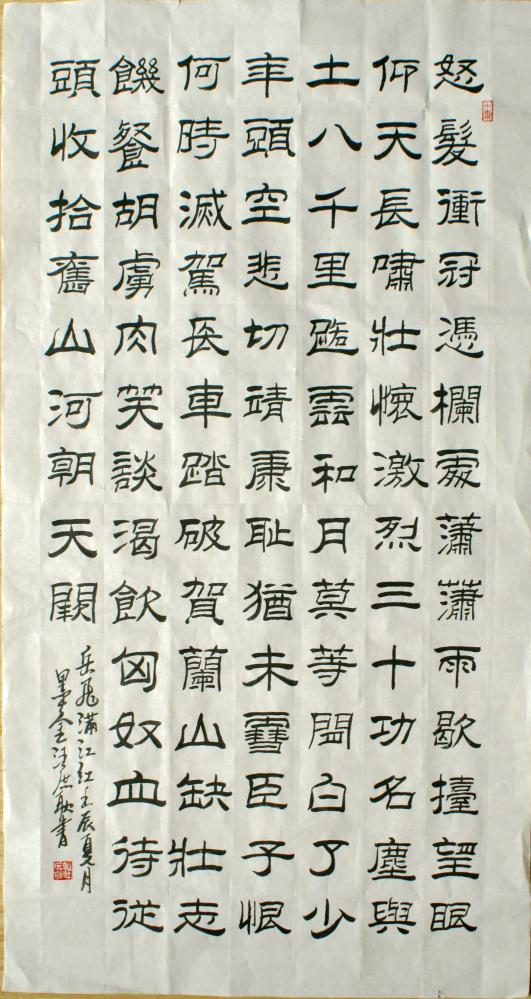 怒髮衝冠憑欄處瀟瀟雨歇擡望眼
仰天長嘯壯懷激烈三十功名塵與
土八千里路雲和月莫等閒白了少
年頭空悲切靖康耻猶未雪臣子恨
何時滅駕長車踏破賀蘭山缺壯志
饑餐胡虜肉笑談渴飲匈奴血待從
頭收拾舊山河朝天闕
岳飛滿江紅壬辰夏月
書